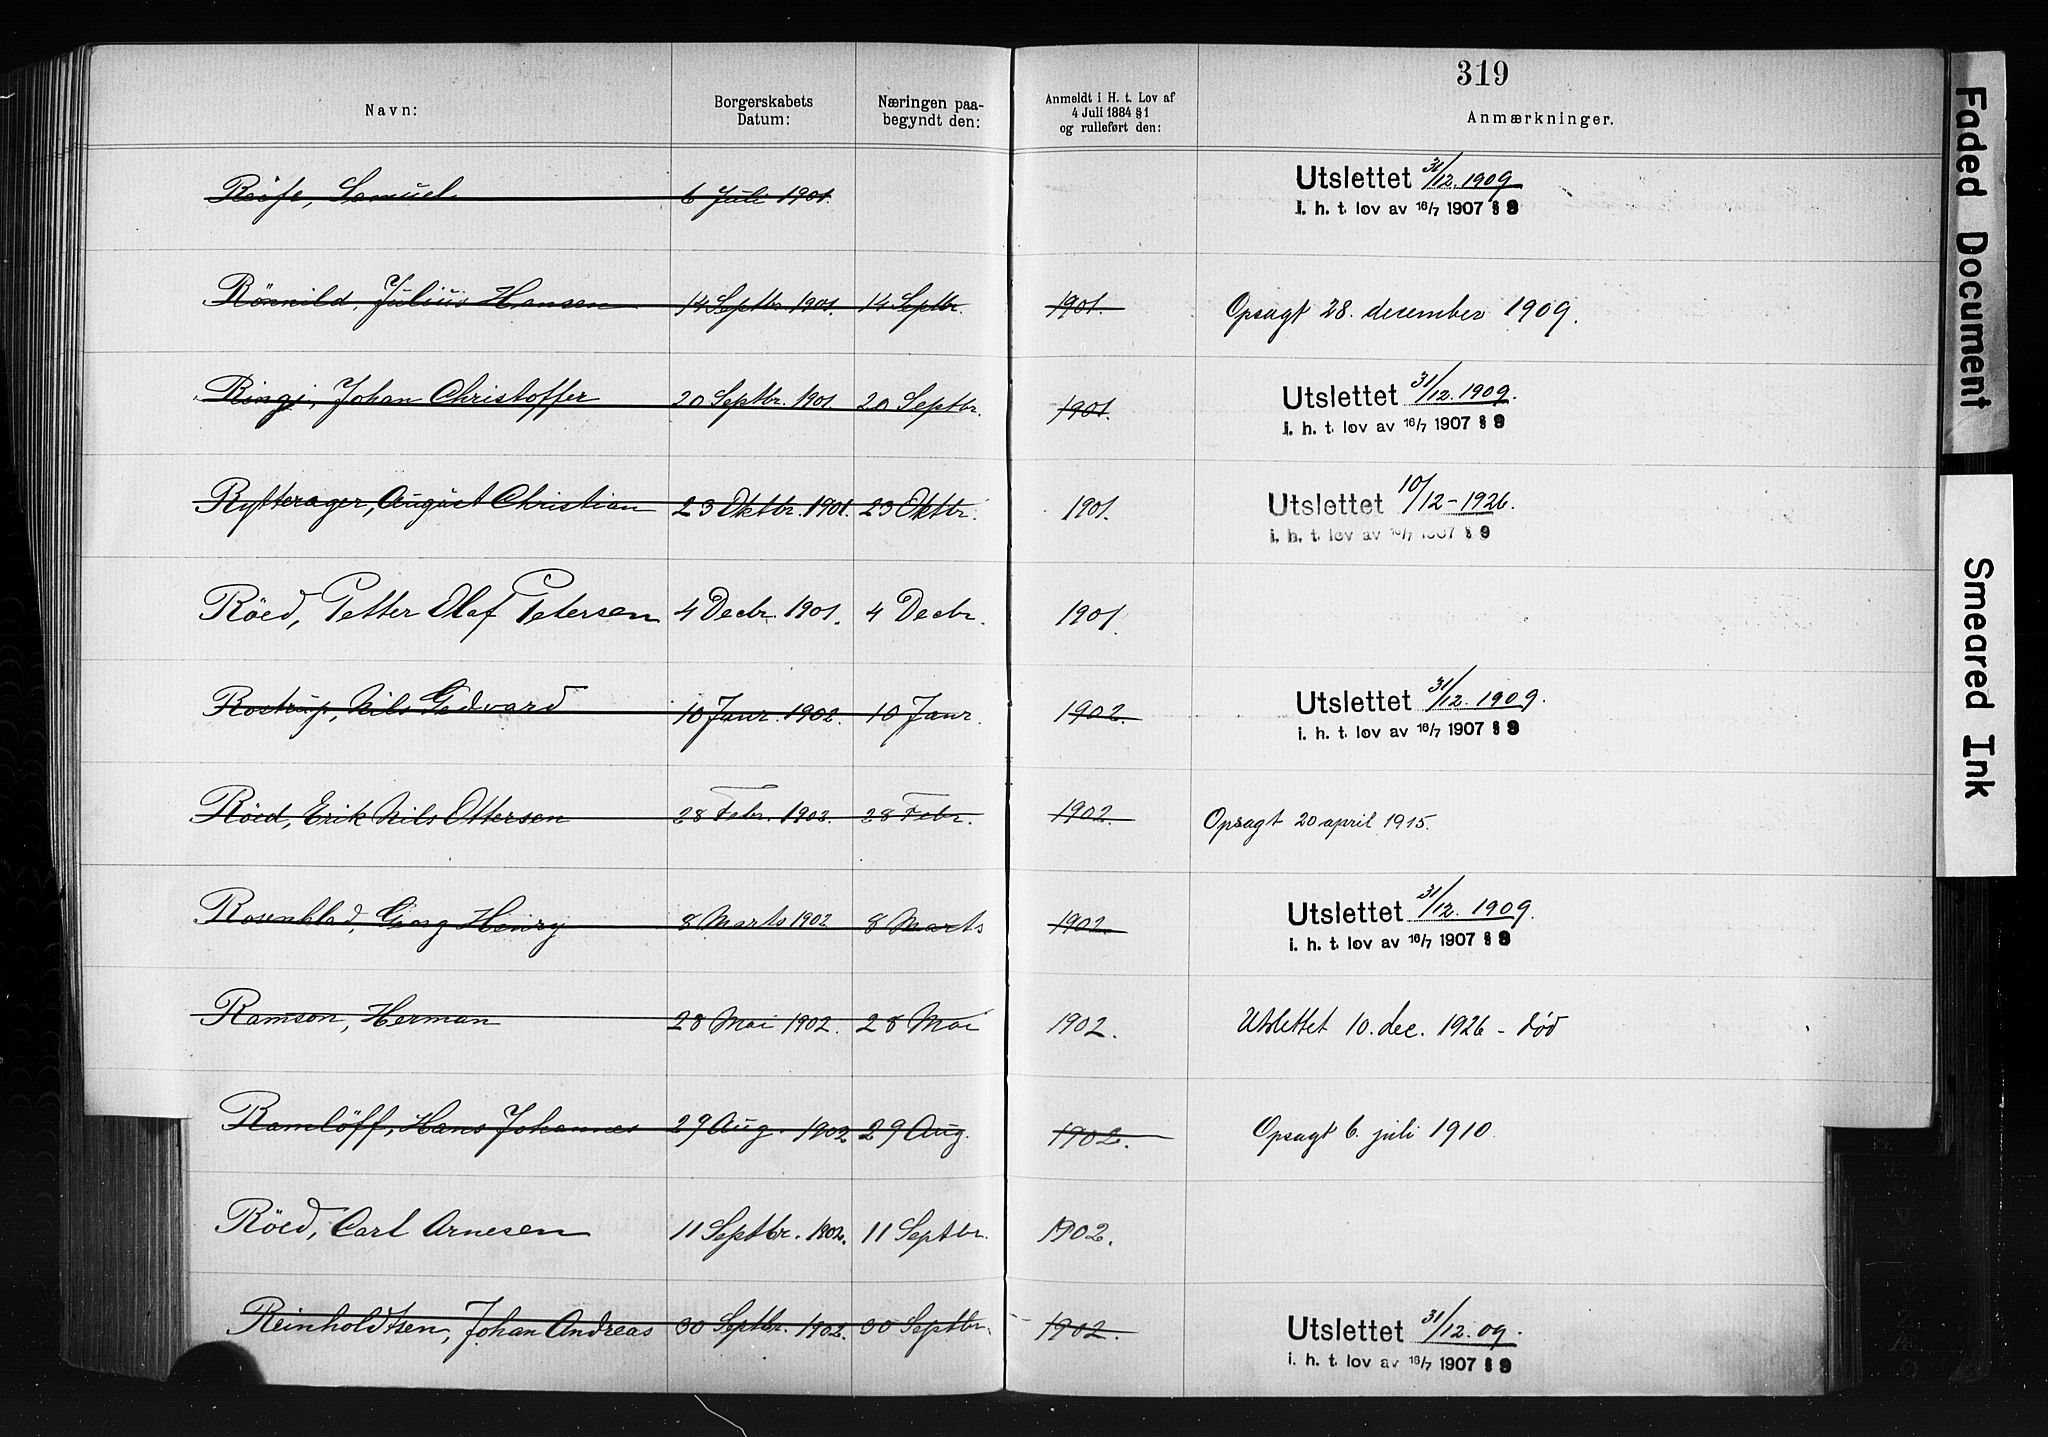 319
Navn: Borgerskabets Datum: Næringen paa-begyndt den: Anmeldt i H. t. Lov af 4 Juli 1884 §1 og rulleført den: Anmærkninger.
Samuel 6 Juli 1901. Utslettet 31/12. 1909
i. h. t. lov av 16/7 1907 § 9
Rönnild, Julius Hansen 14 Septbr. 1901. 14 Septbr. 1901. Opsagt 28. december 1909.
Ringi, Johan Christoffer 20 Septbr. 1901. 20 Septbr. 1901. Utslettet 31/12. 1909.
i. h. t. lov av 16/7 1907 § 9
Rytterager, August Christian 23 Oktbr. 1901. 23 Oktbr. 1901. Utslettet 10/12 - 1926.
i. h. t. lov av 16/7 1907 § 9
Röed, Petter Olaf Petersen 4 Decbr. 1901. 4 Decbr. 1901.
Rostrup, Nils Edvard 10 Janr. 1902. 10 Janr. 1902. Utslettet 31/12. 1909.
i. h. t. lov av 16/7 1907 § 9
Röed, Erik Nils Ottersen 28 Febr. 1902. 28 Febr. 1902. Opsagt 20 april 1915.
Rosenblad, Georg Henry 8 Marts 1902 8 Marts 1902. Utslettet 31/12. 1909.
i. h. t. lov av 16/7 1907 § 9
Ramson, Herman 28 Mai 1902. 28 Mai 1902. Utslettet 10. dec. 1926 - død
Ramlöff, Hans Johannes 29 Aug. 1902 29 Aug. 1902. Opsagt 6. juli 1910.
Röed, Carl Arnesen 11 Septbr. 1902. 11 Septbr. 1902.
Reinholdtsen, Johan Andreas 30 Septbr. 1902. 30 Septbr. 1902. Utslettet 31/12. 09.
i. h. t. lov av 16/7 1907 § 9
Faded Document
Smeared Ink